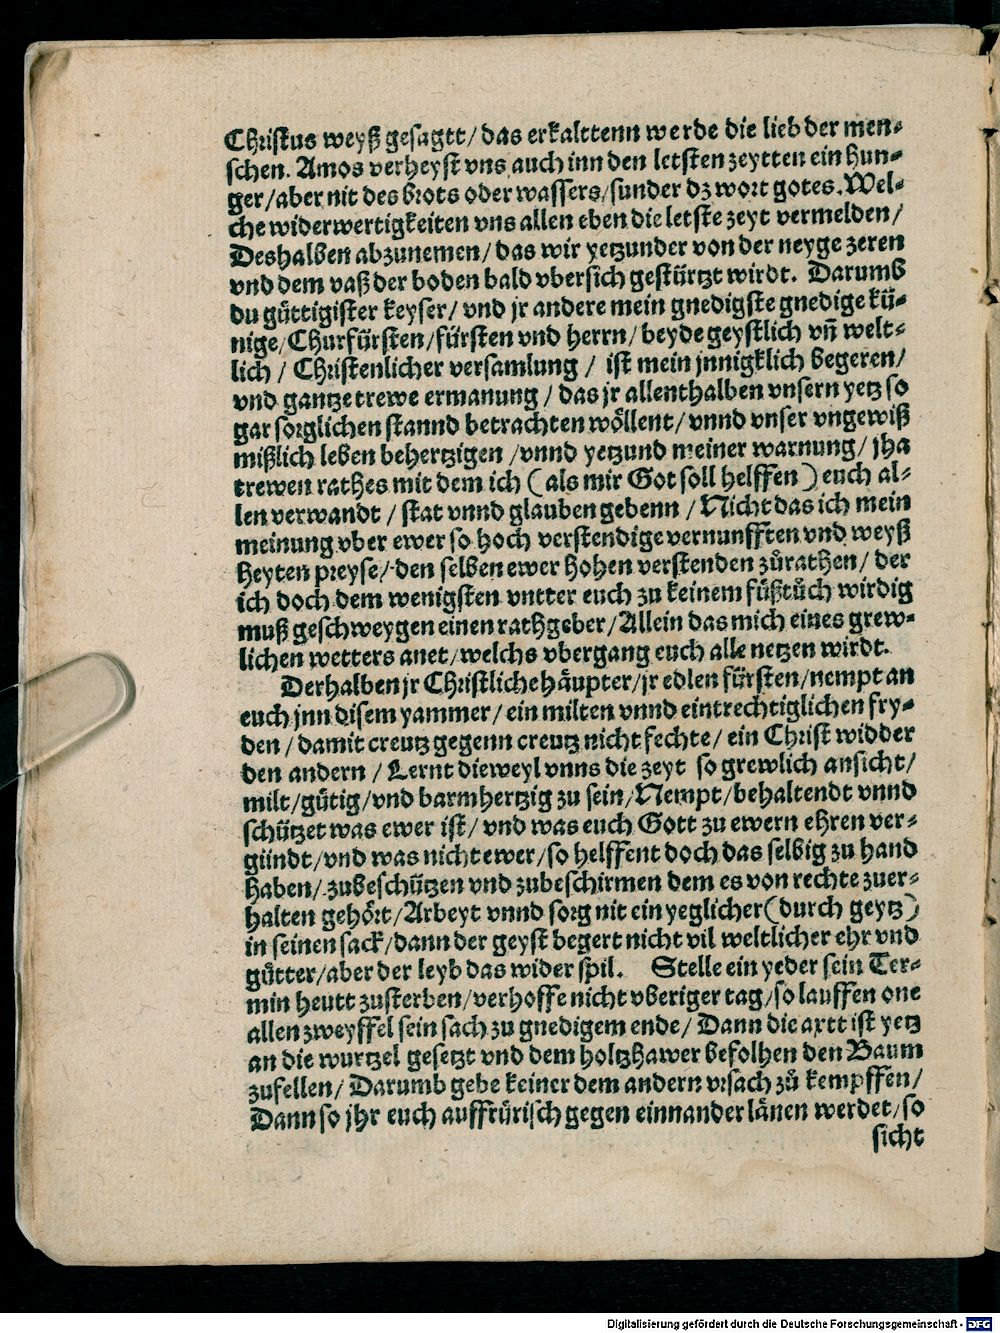 Christus weyß gesagtt/ das erkalttenn werde die lieb der men⸗
schen. Amos verheyst vns auch inn den letsten zeytten ein hun⸗
ger/aber nit des brots oder wassers/sunder dz wort gotes. Wel⸗
che widerwertigkeiten vns allen eben die letste zeyt vermelden/
Deshalben abzunemen/ das wir yetzunder von der neyge zeren
vnd dem vaß der boden bald vbersich gestürtzt wirdt. Darumb
du güttigister keyser/ vnd jr andere mein gnedigste gnedige kü⸗
nige/Churfürsten/fürsten vnd herrn/ beyde geystlich vn̄ welt⸗
lich / Christenlicher versamlung / ist mein jnnigklich begeren/
vnd gantze trewe ermanung / das jr allenthalben vnsern yetz so
gar sorglichen stannd betrachten wöllent/ vnnd vnser vngewiß
mißlich leben behertzigen /vnnd yetzund meiner warnung/ jha
trewen rathes mit dem ich (als mir Got soll helffen) euch al⸗
len verwandt / stat vnnd glauben gebenn / Nicht das ich mein
meinung vber ewer so hoch verstendige vernunfften vnd weyß
heyten preyse/ den selben ewer hohen verstenden zůrathen/ der
ich doch dem wenigsten vntter euch zu keinem fůßtůch wirdig
muß geschweygen einen rathgeber/ Allein das mich eines grew⸗
lichen wetters anet/welchs vbergang euch alle netzen wirdt.
Derhalben jr Christliche häupter/jr edlen fürsten/nempt an
euch jnn disem yammer/ ein milten vnnd eintrechtiglichen fry⸗
den / damit creutz gegenn creutz nicht fechte/ ein Christ widder
den andern / Lernt dieweyl vnns die zeyt so grewlich ansicht/
milt/gütig/vnd barmhertzig zu sein/Nempt/behaltendt vnnd
schützet was ewer ist/ vnd was euch Gott zu ewern ehren ver⸗
gündt/vnd was nicht ewer/so helffent doch das selbig zu hand
haben/ zubeschützen vnd zubeschirmen dem es von rechte zuer⸗
halten gehört/Arbeyt vnnd sorg nit ein yeglicher(durch geytz)
in seinen sack/dann der geyst begert nicht vil weltlicher ehr vnd
gütter/aber der leyb das wider spil. Stelle ein yeder sein Ter⸗
min heutt zusterben/verhoffe nicht vberiger tag/so lauffen one
allen zweyffel sein sach zu gnedigem ende/ Dann die axtt ist yetz
an die wurtzel gesetzt vnd dem holtzhawer befolhen den Baum
zufellen/ Darumb gebe keiner dem andern vrsach zů kempffen/
Dann so jhr euch auffrürisch gegen einnander länen werdet/so
sicht
Digitalisierung gefördert durch die Deutsche Forschungsgemeinschaft - DFG